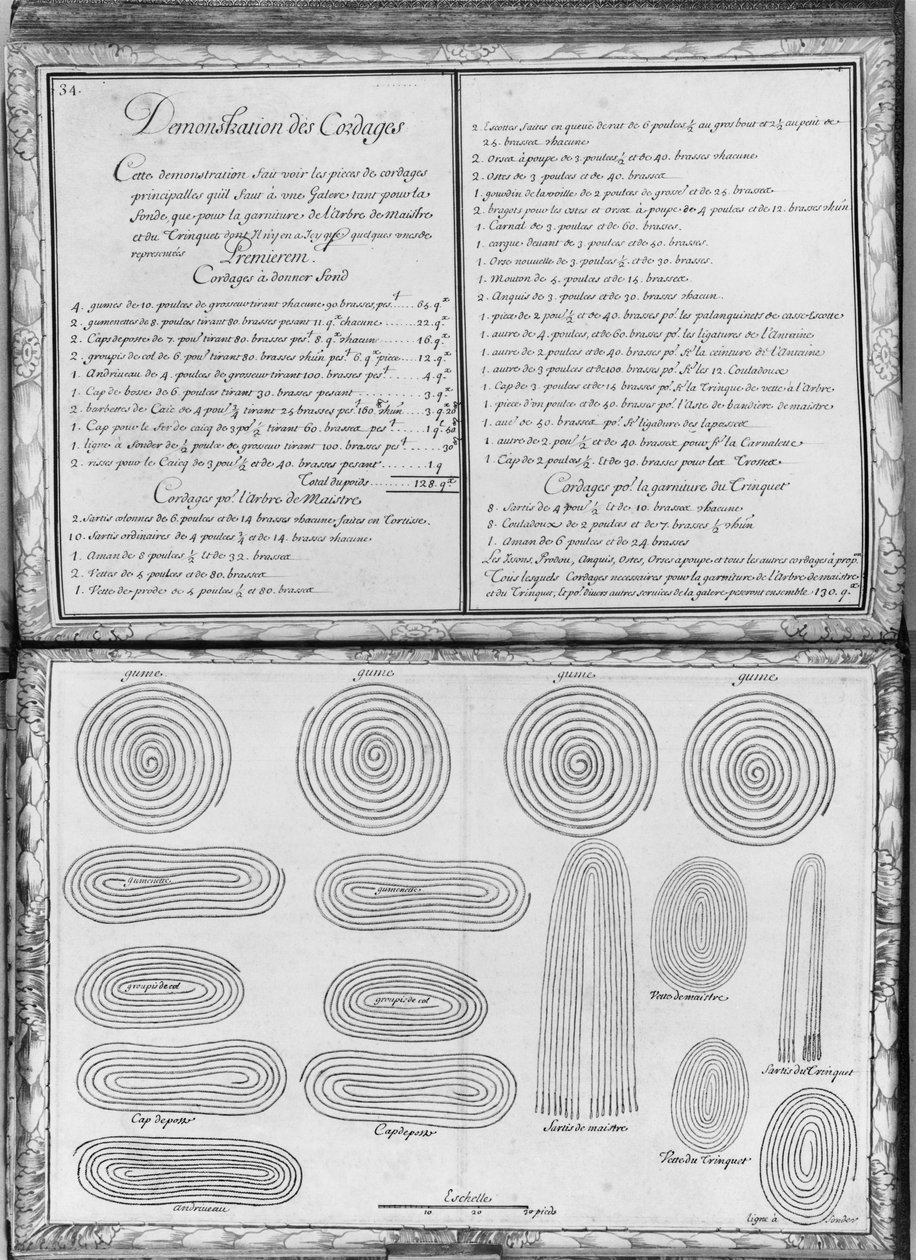 34.
Demonstration des Cordages
Cette demonstration fait voir les pieces de cordages
principalles quil faut à vne Galere tant pour la
fonde, que pour la garniture de l'Arbre de Maistre
et du Trinquet dont Il n'y en a Icy que quelques vnes de
representées
Premierem.
Cordages à donner fond
4. gumes de 10. poulces de grosseur tirant chacune 90 brasses, pest..... 64. qx
2. gumenettes de 8. poulces tirant 80. brasses pesant 11. qx chacune...... 22. qx
2. Caps de poste de 7. pous tirant 80. brasses pest. 8. qx chacun....... 16. qx
2. groupis de col de 6. pous tirant 80. brasses chun pest 6. qx piece.... 12. qx
1. Andriueau de 4. poulces de grosseur tirant 100. brasses pest....... 4. qx
1. Cap de bosse de 6. poulces tirant 30. brasses pesant........ 3. qx
2. barbettes de Caic de 4 pous 3/4 tirant 25 brasses pest 160. chun... 3. q. 20
1. Cap pour le fer de caicq de 3 po. 1/2 tirant 60. brassea pest...... 1 q. 50
1. ligne à Sonder de 1/2 poulce de grosseur tirant 100. brasses pest... 30
2. risses pour le Caicq de 3 pous 1/2 et de 40. brasses pesant....... 1 q
Total du poids....... 128. qx
Cordages po. l'Arbre de Maistre
2. Sartis colonnes de 6. poulces et de 14 brasses chacune faites en Tortisse.
10. Sartis ordinaires de 4 poulces 3/4 et de 14. brasses chacune
1. Aman de 8 poulces 1/2 Et de 32. brassea
2. Vettes de 5 poulces et de 80. brassea
1. Vette de prode de 5 poulces 1/2 et 80. brassea
2. Escottes faites en queüe de rat de 6 poulces 1/2 au gros bout et 2 1/2 au petit de
25. brassea chacune
2. Orsea à poupe de 3. poulces 1/2 et de 40. brasses chacune
2. Ostes de 3 poulces et de 40. brassea
1. gourdin de la voille de 2 poulces de grosseur et de 25. brassea
2. bragots pour les ostes et Orsea à poupe de 4 poulces et de 12. brasses chun
1. Carnal de 3. poulces et de 60. brasses.
1. cargue deuant de 3. poulces et de 50. brasses.
1. Orse nouuelle de 3. poulces 1/2 et de 30. brasses.
1. Mouton de 5. poulces et de 15. brassea
2. Anquis de 3. poulces et de 30. brasses chacun.
1. piece de 2 pous 1/2 et de 40. brasses po. les palanquinets de casse-Escotte
1. autre de 4. poulces, et de 60. brasses po. les ligatures de l'Antaine
1. autre de 2 poulces et de 40. brasses po. la ceinture de l'Antaine
1. autre de 3 poulces et de 100. brasses po. les 12. Couladoux
1. Cap de 3. poulces et de 15 brasses po. la Trinque de vette à l'Arbre
1. piece d'un poulce et de 50. brasses po. l'Aste de bandiere de maistre
1. aue de 50. brassea po. ligadure des lapassea
1. autre de 2. pous 1/2 et de 40. brassea pour la Carnalette
1. Cap de 2 poulces 1/2. Et de 30. brasses pour lea Trossea
Cordages po. la garniture du Trinquet
8. Sartis de 4 pous 1/2 Et de 10. brassea chacune
8. Couladoux de 2 poulces et de 7. brasses 1/2 chun
1. Aman de 6 poulces et de 24. brasses
Les Issons, Prodou, Anquis, Ostes, Orses à poupe et tous les autres cordages à propon.
Tous lesquels Cordages necessaires pour la garniture de l'Arbre de maistre
et du Trinquet, Et po. diuers autres seruices de la galere peseront ensemble 130. qx
gume
gume
gume
gume
gumenette
gumenette
groupis de col
groupis de col
Vette de maistre
Sartis du Trinquet
Cap de poste
Cap de poste
Sartis de maistre
Vette du Trinquet
andriueau
Eschelle
10 20 30 pieds
ligne à Sonder